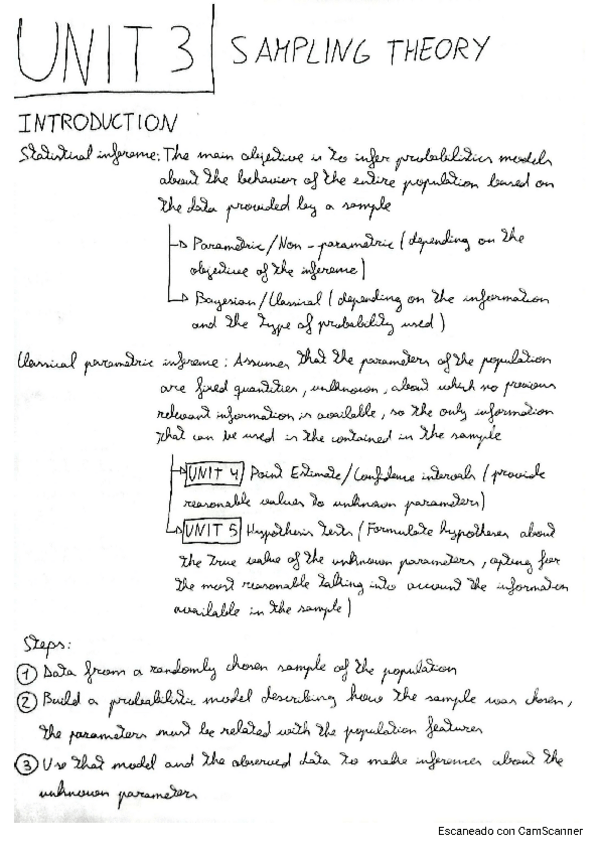 UNIT 3 SAMPLING THEORY
INTRODUCTION
Statistical inference: The main objective is to infer probabilistics models
about the behavior of the entire population based on
the data provided by a sample
Parametric/Non-parametric (depending on the
objective of the inference)
Bayesian/Classical (depending on the information
and the type of probability used)
Classical parametric inference: Assumes that the parameters of the population
are fixed quantities, unknown, about which no previous
relevant information is available, so the only information
that can be used is the contained in the sample
UNIT 4 Point Estimate/Confidence intervals (provide
reasonable values to unknown parameters)
UNIT 5 Hypothesis tests (Formulate hypotheses about
the true value of the unknown parameters, opting for
the most reasonable talking into account the information
available in the sample)
Steps:
1 Data from a randomly chosen sample of the population
2 Build a probabilistic model describing how the sample was chosen,
the parameters must be related with the population features
3 Use that model and the observed data to make inferences about the
unknown parameters
Escaneado con CamScanner